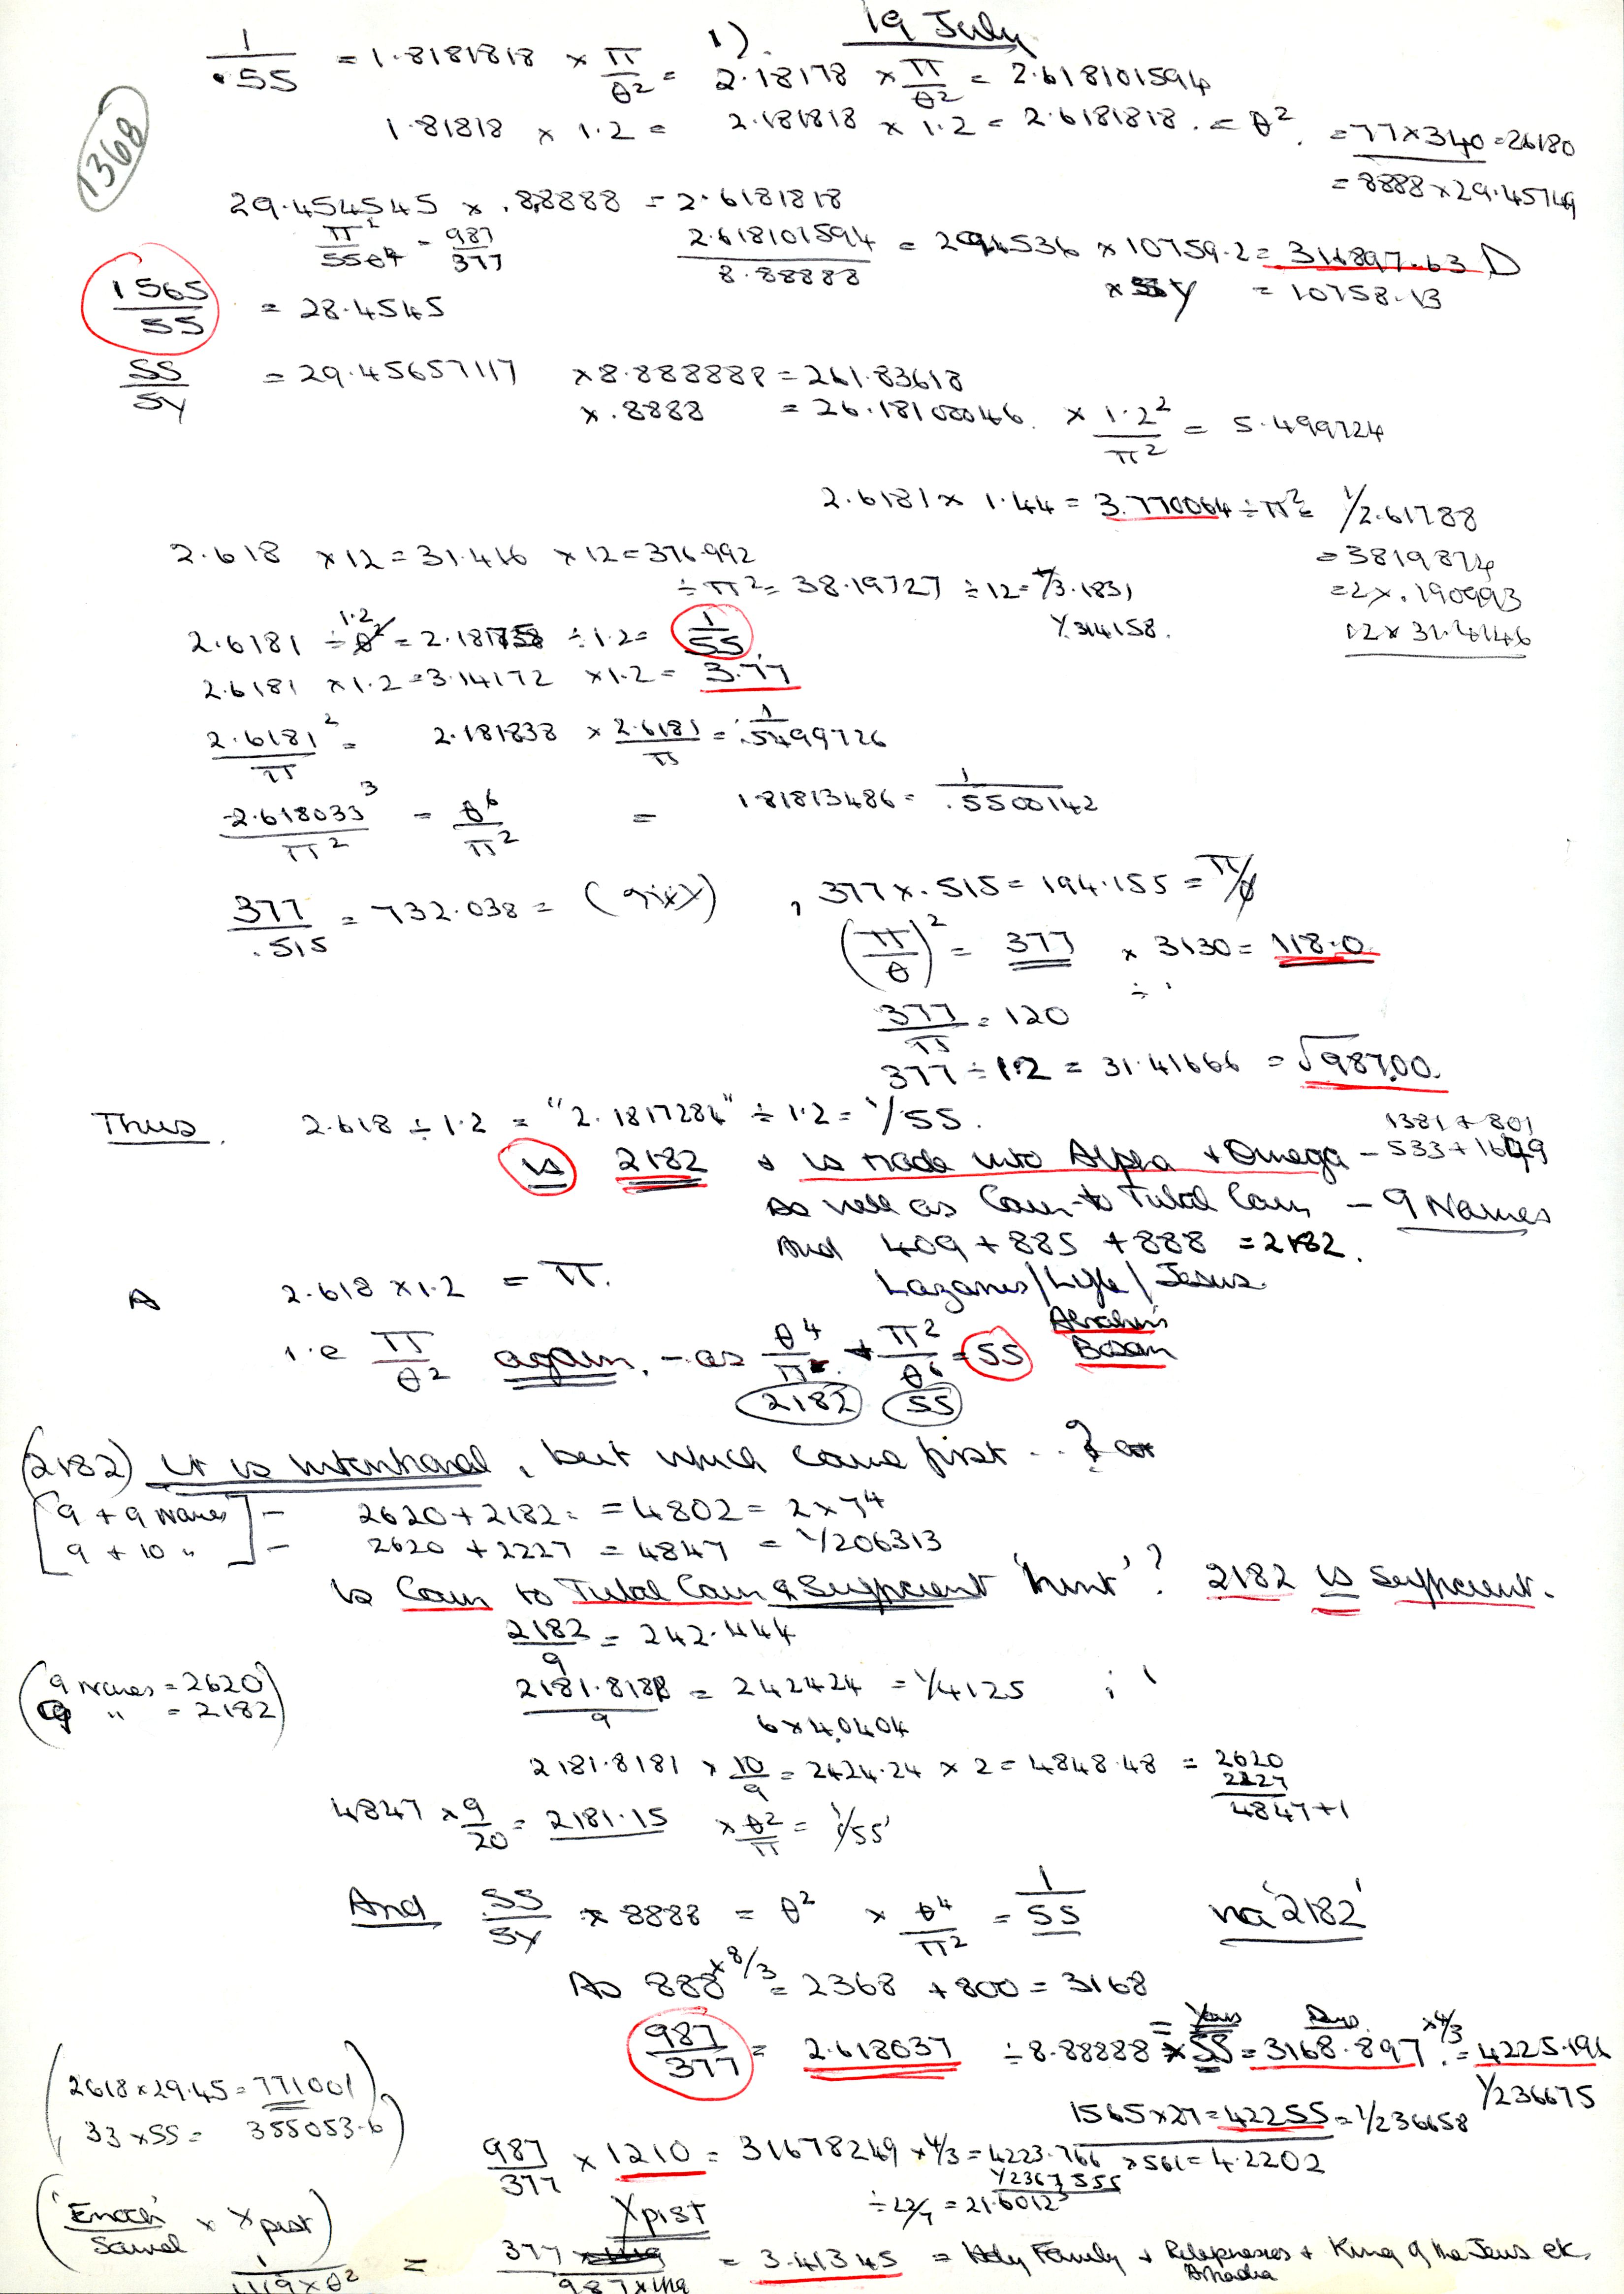 1). 19 July
1/.55 = 1.8181818 × π/θ² = 2.18178 × π/θ² = 2.618101594
1368
1.81818 × 1.2 = 2.181818 × 1.2 = 2.6181818. = θ². = 77×340 = 26180
= 8888 × 29.45749
29.454545 × .88888 = 2.6181818
π²/55θ⁴ = 987/377 2.618101594/8.88888 = 294536 × 10759.2 = 316897.63 D
1565/55 = 28.4545 = 10758.13
SS/SY = 29.45657117 × 8.888888 = 261.83618
× .8888 = 26.18100046. × 1.2²/π² = 5.499724
2.6181 × 1.44 = 3.770064 ÷ π² = 1/2.61788
2.618 × 12 = 31.416 × 12 = 376.992 = 3819874
÷ π² = 38.19727 ÷ 12 = 1/3.1831 = 2 × .190993
2.6181 ÷ 1.2 = 2.181758 ÷ 1.2 = 1/55. 1/.314158. 12 × 31.4146
2.6181 × 1.2 = 3.14172 × 1.2 = 3.77
2.6181²/π = 2.181838 × 2.6181/π = 1/.5499726
2.618033³/π² = θ⁶/π² = 1.81813486 = 1/.5500142
377/.515 = 732.038 = , 377 × .515 = 194.155 = π/θ
(π/θ)² = 377 × 3130 = 118.0
377/π = 120
377 ÷ 1.2 = 31.41666 = √987.00.
Thus. 2.618 ÷ 1.2 = "2.1817286" ÷ 1.2 = 1/55. 1381 + 801
is 2182 + is made into Alpha + Omega – 533 + 1649
as well as Cain to Tubal Cain – 9 Names
And 409 + 885 + 888 = 2182.
A 2.618 × 1.2 = π. Lazarus/Lyfe/Jesus.
i.e π/θ² again. – as θ⁴/π² + π²/θ⁶ = 55 Abraham's Bosom
2182 55
(2182) It is intentional, but which came first ..?
[9 + 9 Names] – 2620 + 2182 = 4802 = 2 × 7⁴
[9 + 10 "] – 2620 + 2227 = 4847 = 1/206313
Is Cain to Tubal Cain a Sufficient 'hint'? 2182 is Sufficient.
2182/9 = 242.444
(9 Names = 2620) 2181.8188/9 = 242424 = 1/4125 ;
(9 " = 2182) 6 × 4.0404
2181.8181 × 10/9 = 2424.24 × 2 = 4848.48 = 2620
2227
4847 + 1
4847 × 9/20 = 2181.15 × θ²/π = 1/55'
And SS/SY × 8888 = θ² × θ⁴/π² = 1/55 via '2182'
As 888 × 8/3 = 2368 + 800 = 3168
987/377 = 2.618037 ÷ 8.88888 × SS = 3168.897 × 4/3 = 4225.196
= Years Days
1/236675
(2618 × 29.45 = 771001) 1565 × 27 = 42255 = 1/236658
(33 × SS = 355053.6)
987/377 × 1210 = 31678249 × 4/3 = 4223.766 × 561 = 4.2202
1/2367555
÷ 22/7 = 21.6012
('Enoch'/Samuel × Xpist) Xpist
1/1119×θ² = 377/987 = 3.41345 = Holy Family + + King of the Jews etc.